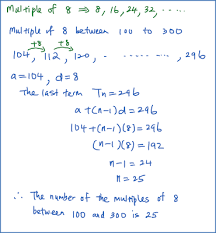 Multiple of 8 ⇒ 8, 16, 24, 32, .....
Multiple of 8 between 100 to 300
+8 +8
104, 112, 120, - ........., 296
a=104, d=8
The last term Tn=296
a+(n-1)d=296
104+(n-1)(8)=296
(n-1)(8)=192
n-1=24
n=25
∴ The number of the multiples of 8
between 100 and 300 is 25